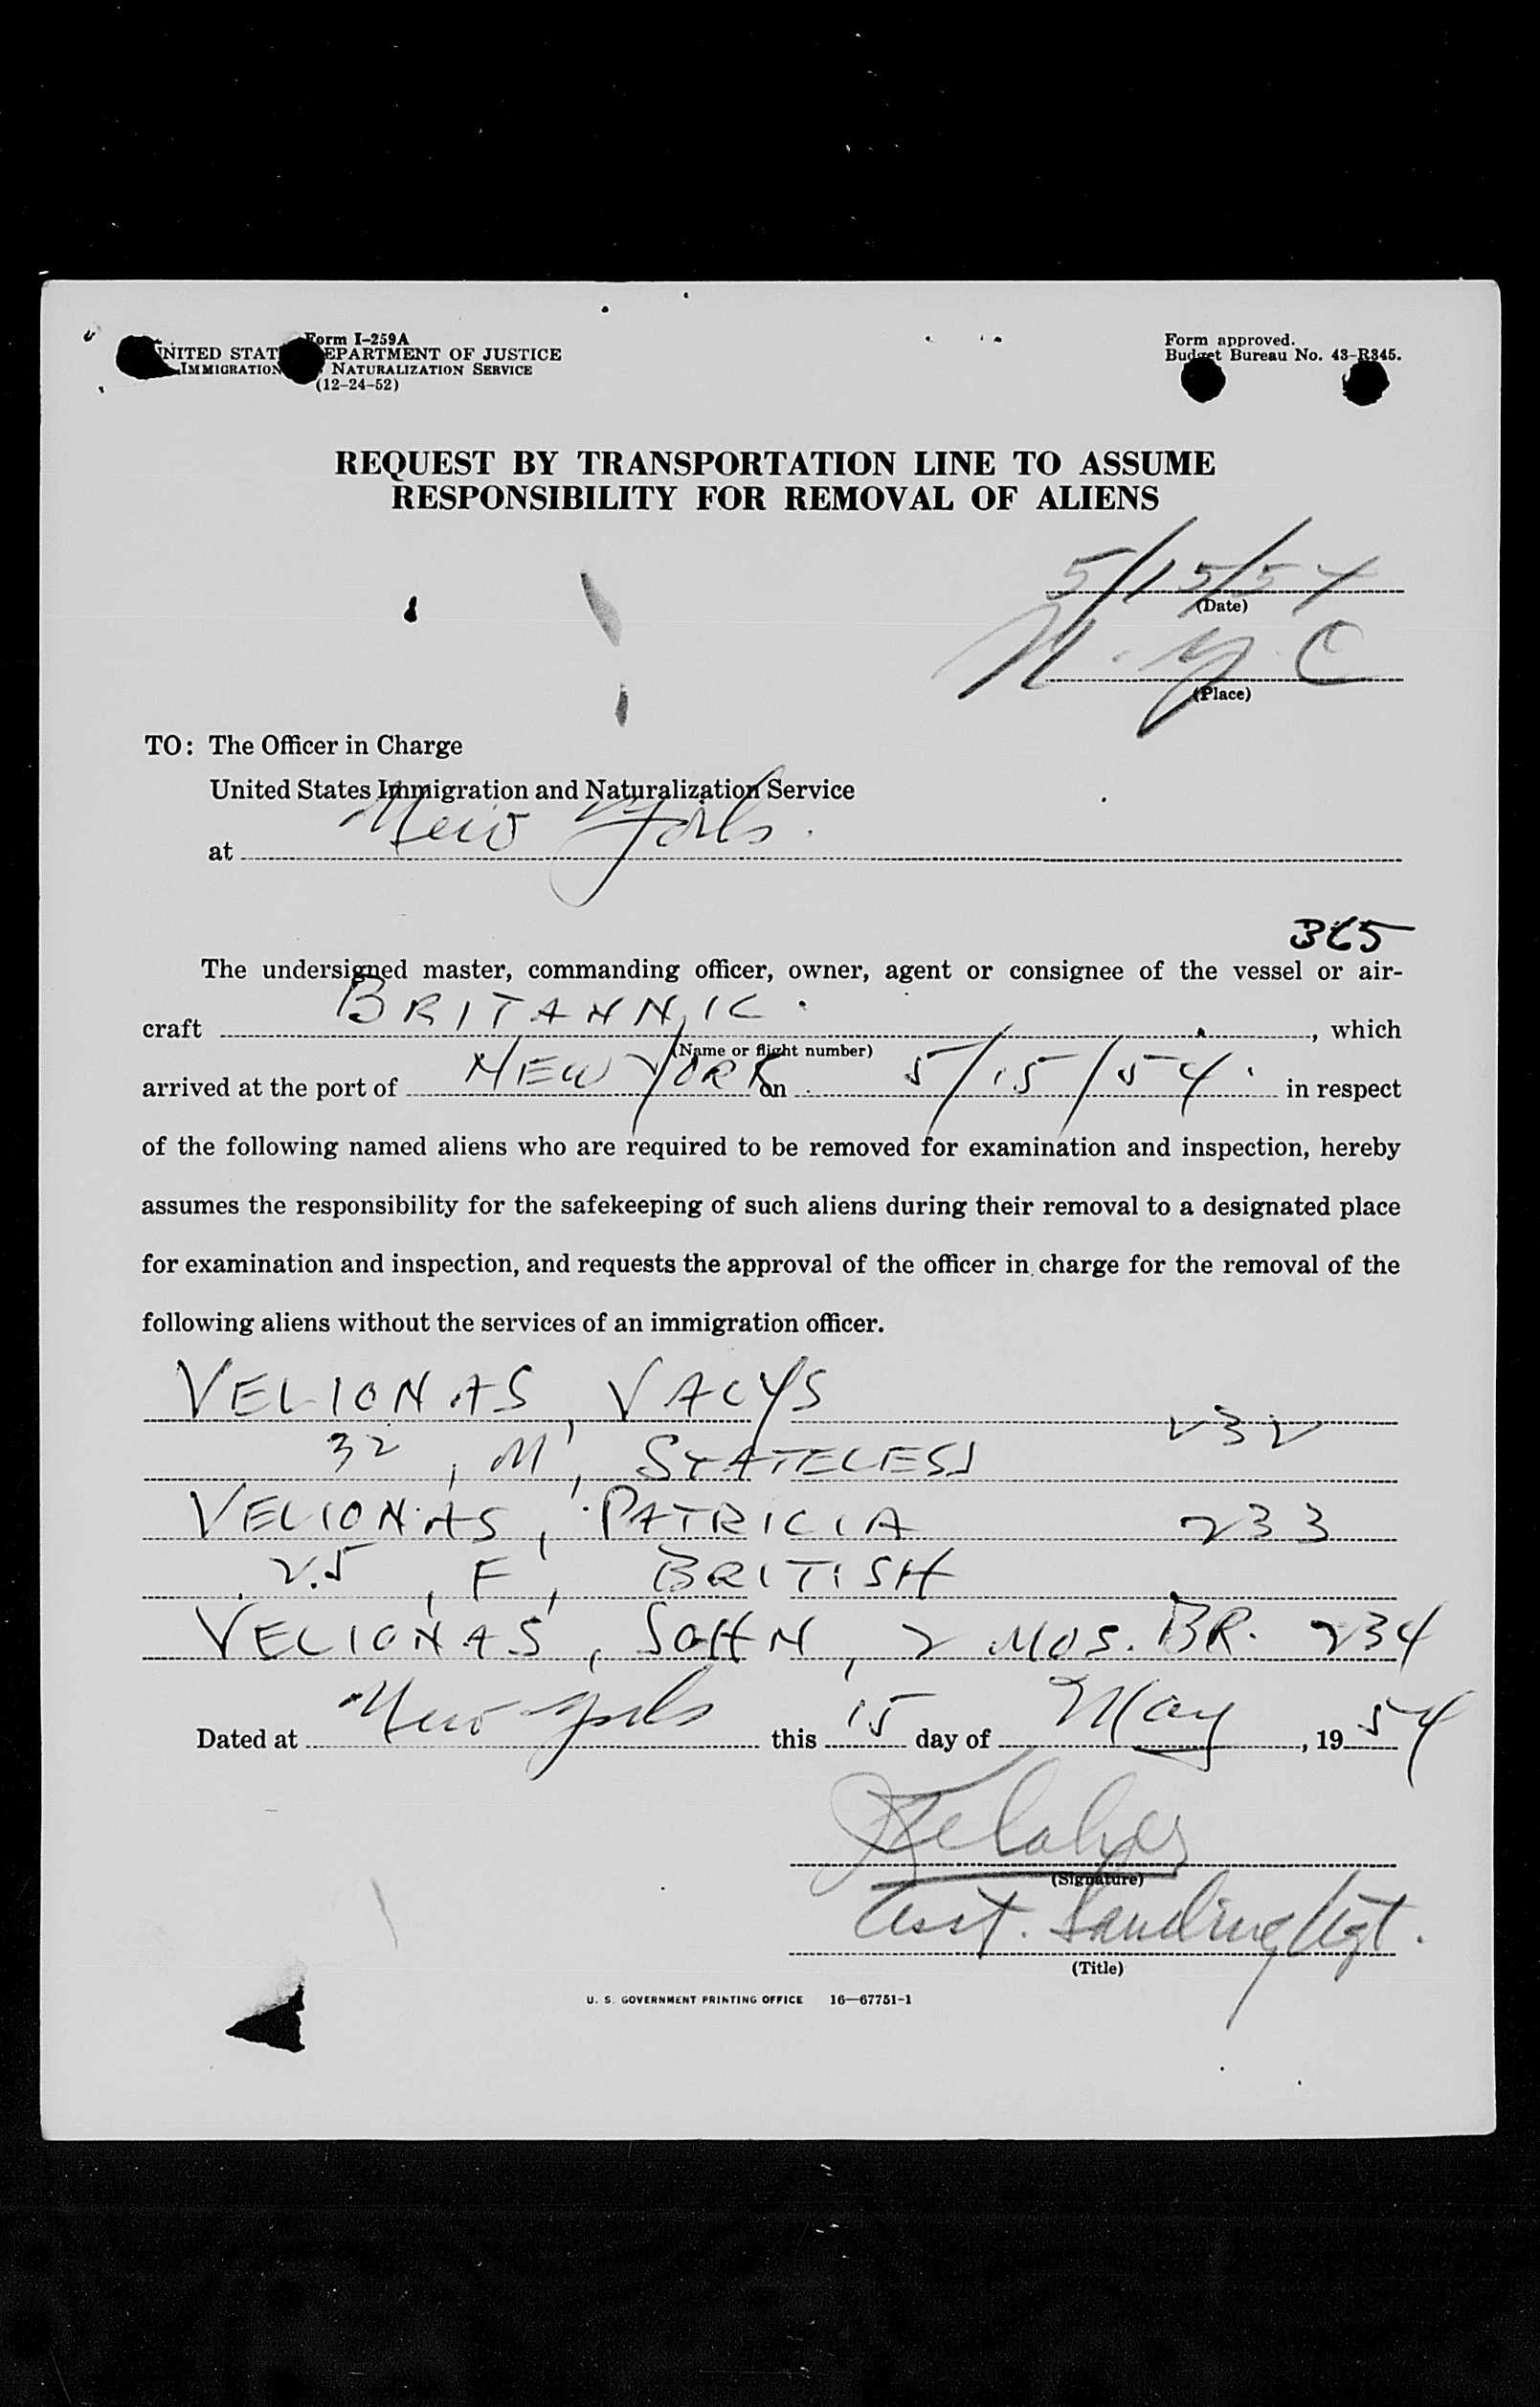 Form I-259A
UNITED STATES DEPARTMENT OF JUSTICE
IMMIGRATION NATURALIZATION SERVICE
(12-24-52)
Form approved.
Budget Bureau No. 43-R345.
REQUEST BY TRANSPORTATION LINE TO ASSUME
RESPONSIBILITY FOR REMOVAL OF ALIENS
5/15/54
(Date)
N.Y.C
(Place)
TO: The Officer in Charge
United States Immigration and Naturalization Service
at New York.
365
The undersigned master, commanding officer, owner, agent or consignee of the vessel or air-
craft BRITANNIC, which
(Name or flight number)
arrived at the port of NEW YORK on 5/15/54 in respect
of the following named aliens who are required to be removed for examination and inspection, hereby
assumes the responsibility for the safekeeping of such aliens during their removal to a designated place
for examination and inspection, and requests the approval of the officer in charge for the removal of the
following aliens without the services of an immigration officer.
VELIONAS, VACYS 232
32, M, STATELESS
VELIONAS, PATRICIA 233
25, F, BRITISH
VELIONAS, JOHN, 2 MOS. BR. 234
Dated at New York this 15 day of May, 1954
(Signature)
Asst. Landing Agt.
(Title)
U. S. GOVERNMENT PRINTING OFFICE 16—67751-1